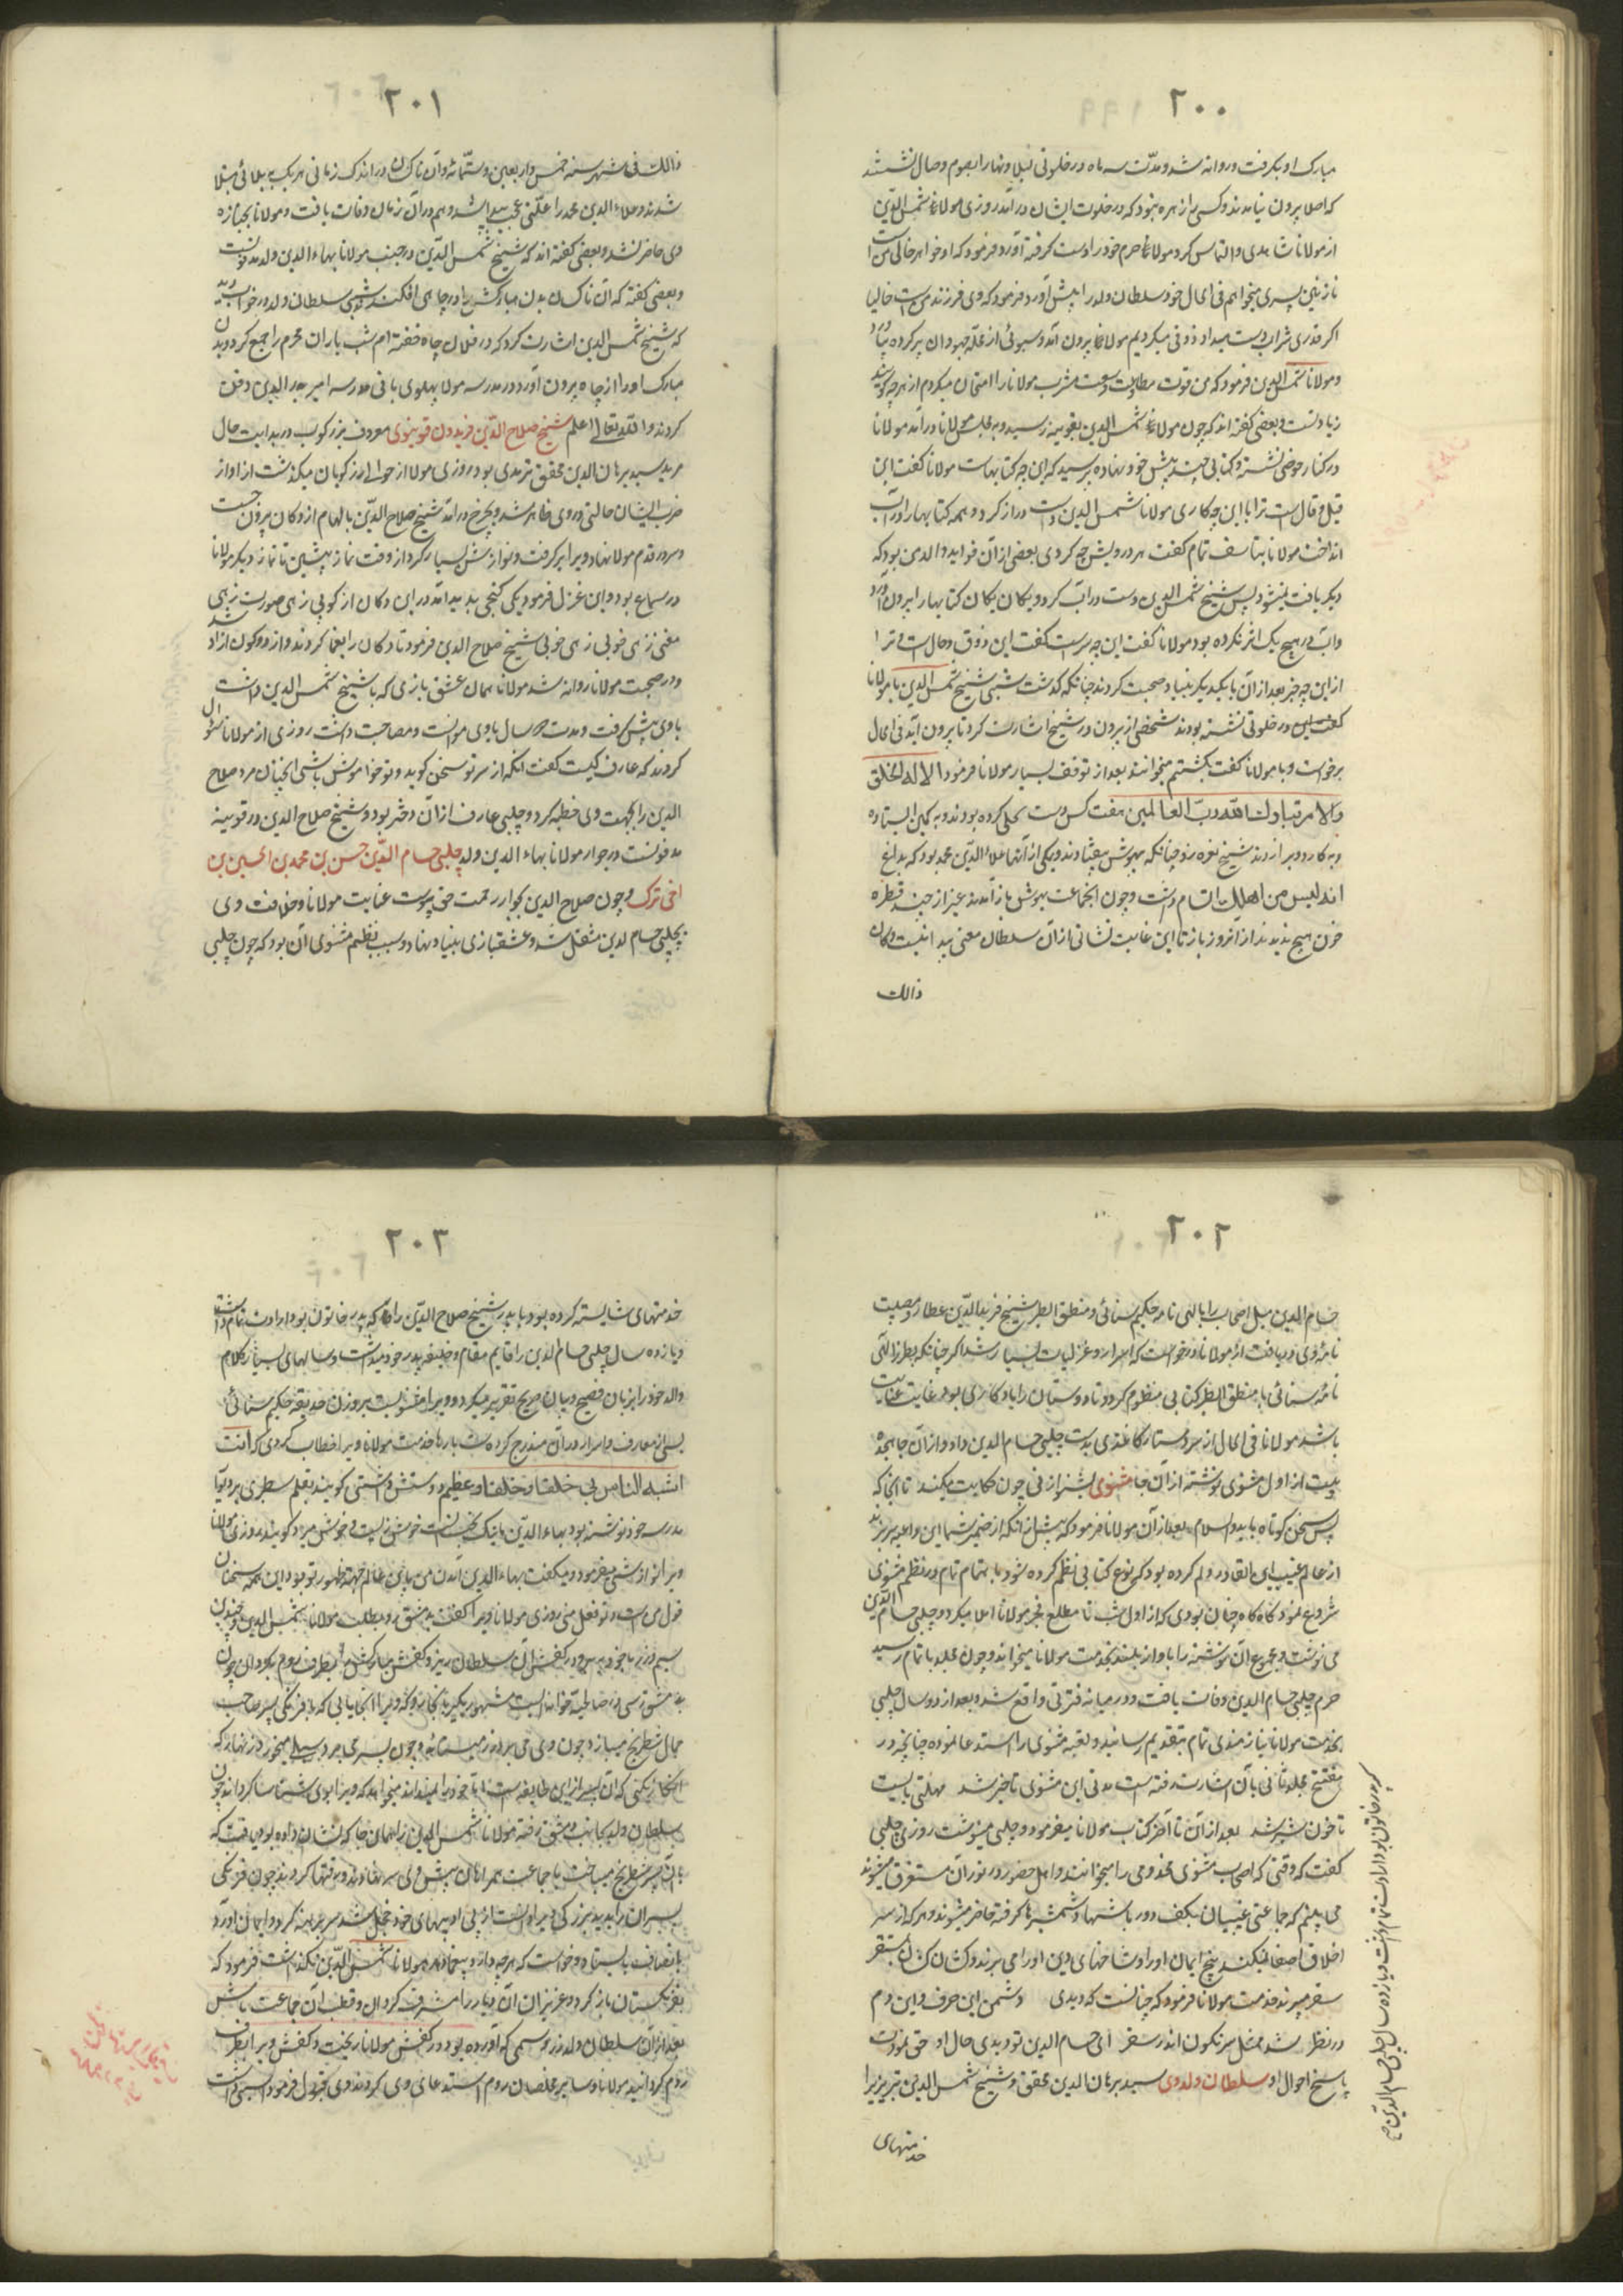 ۲۰۰
مبارک او بگرفت و روانه شد و مدّت سه ماه در خلوتی لیلا و نهارا بصوم وصال نشستند
که اصلا بیرون نیامدند و کسی را زهره نبود که در خلوت ایشان درآمد روزی مولانا شمس الدین
از مولانا شاهدی التماس کرد مولانا حرم خود را دست گرفته آورد فرمود که او خواهر جانی من است
نازنین پسری میخواهم فی الحال خود سلطان ولد را پیش آورد فرمود که وی فرزند من است حالیا
اگر قدری شراب دست میداد ذوقی میکردیم مولانا بیرون آمد و سبوئی از محلّه جهودان پر کرده بیاورد
و مولانا شمس الدین فرمود که من قوت مطاوعت و وسعت مشرب مولانا را امتحان میکردم از هر چه گویند
زیادتست و بعضی گفته اند که چون مولانا شمس الدین بقونیه رسید و به مجلس مولانا درآمد مولانا
در کنار حوضی نشسته و کتابی چند پیش خود نهاده پرسید که این چه کتابهاست مولانا گفت این
قیل و قال است ترا با این چه کار مولانا شمس الدین دست دراز کرد و همه کتابها را در آب
انداخت مولانا بتاسف تمام گفت هی درویش چه کردی بعضی از آن فواید والدی بود که
دیگر یافت نمیشود پس شیخ شمس الدین دست در آب کرد و یکان یکان کتابها را بیرون آورد
و آب در هیچ یک اثر نکرده بود مولانا گفت این چه سرست گفت این ذوق و حال است ترا
از این چه خبر بعد از آن با یکدیگر بنیاد صحبت کردند چنانکه گذشت شبی شیخ شمس الدین با مولانا
در خلوتی نشسته بودند شخصی از بیرون در شیخ را اشارت کرد تا بیرون آید فی الحال
برخواست و با مولانا گفت بکشتنم میخوانند بعد از توقف بسیار مولانا فرمود الا له الخلق
والامر تبارک الله ربّ العالمین هفت کس دست یکی کرده بودند و به کمین ایستاده
و به کارد ویرا زدند شیخ نعره زد چنانکه بیهوش بیفتادند و یکی از آنها علاء الدین محمد بود که بداغ
انه لیس من اهلک اتسام داشت و چون انجماعت بهوش باز آمدند غیر از چند قطره
خون هیچ ندیدند از آنروز باز تا این غایت نشانی از آن سلطان معنی پیدا نیست و کان
ذالک
۲۰۱
ذالک فی شهور سنه خمس و اربعین و ستّمائة و آن ناکسان در اندک زمانی هر یک به بلائی مبتلا
شدند و علاء الدین محمد را علّتی عجب پیدا شد و هم در آن زمان وفات یافت و مولانا بجنازه
وی حاضر نشد و بعضی گفته اند که شیخ شمس الدین در جنب مولانا بهاء الدین ولد مدفونست
و بعضی گفته که آن ناکسان بدن مبارکش را در چاهی افکندند شبی سلطان ولد در خواب دید
که شیخ شمس الدین اشارت کرد که در فلان چاه خفته ام شب یاران محرم را جمع کرد و بدن
مبارک او را از چاه بیرون آورد و در مدرسه مولانا پهلوی بانی مدرسه امیر بدر الدین دفن
کردند والله تعالی اعلم شیخ صلاح الدّین فریدون قونیوی معروف بزرکوب در بدایت حال
مرید سید برهان الدین محقق ترمذی بود روزی مولانا از حوالی زرکوبان میگذشت از آواز
ضرب ایشان حالتی در وی ظاهر شد و بچرخ درآمد شیخ صلاح الدّین بالهام از دکان بیرون جست
و سر در قدم مولانا نهاد ویرا بر گرفت و نوازش بسیار کرد از وقت نماز پیشین تا نماز دیگر مولانا
در سماع بود و این غزل فرمود یکی گنجی پدید آمد در این دکان زرکوبی زهی صورت زهی
معنی زهی خوبی زهی خوبی شیخ صلاح الدین فرمود تا دکان را یغما کردند و از دو کون آزاد شد
و در صحبت مولانا روانه شد مولانا همان عشق بازی که با شیخ شمس الدین داشت
با وی پیش گرفت و مدت ده سال با وی موانست و مصاحبت داشت روزی از مولانا سئوال
کردند که عارف کیست گفت انکه از سر تو سخن گوید و تو خاموش باشی انچنان مرد صلاح
الدین را بجهت وی خطبه کرد و چلبی عارف از آن دختر بود و شیخ صلاح الدین در قونیه
مدفونست در جوار مولانا بهاء الدین ولد چلبی حسام الدّین حسن بن محمد بن الحسین بن
اخی ترک و چون صلاح الدین بجوار رحمت حق پیوست عنایت مولانا و خلافت وی
بچلبی حسام الدین منتقل شد و عشقبازی بنیاد نهاد و سبب نظم مثنوی آن بود که چون چلبی
۲۰۲
حسام الدین میل اصحاب را با الهی نامه حکیم سنائی و منطق الطیر شیخ فرید الدّین عطار و مصیبت
نامه وی دریافت از مولانا درخواست که اسرار و غزلیات بسیار شد اگر چنانکه بطرز الهی
نامهٔ سنائی یا منطق الطیر کتابی منظوم کردد تا دوستان را یادگاری بود غایت عنایت
باشد مولانا فی الحال از سر دستار کاغذی بدست چلبی حسام الدین داد و از آن جا هجده
بیت از اول مثنوی نوشته از آن جا مثنوی بشنو از نی چون حکایت میکند تا انجا که
پس سخن کوتاه باید والسلام بعد از آن مولانا فرمود که پیش از انکه از ضمیر شما این داعیه سر زند
از عالم غیب این القا در دلم کرده بود که این نوع کتابی نظم کرده شود باهتمام تام در نظم مثنوی
شروع نمود گاه گاه چنان بودی که از اول شب تا مطلع فجر مولانا املا میکرد و چلبی حسام الدّین
می نوشت و مجموع آن نوشته را با واز بلند بخدمت مولانا میخواند و چون مجلد باتمام رسید
حرم چلبی حسام الدین وفات یافت و در میانه فترتی واقع شد و بعد از دو سال چلبی
بخدمت مولانا نیازمندی تمام بتقدیم رسانید و بقیه مثنوی را استدعا نموده چنانچه در
مفتتح مجلد ثانی بآن اشارت رفته است مدتی این مثنوی تاخیر شد مهلتی بایست
تا خون شیر شد بعد از آن تا آخر کتاب مولانا میفرمود و چلبی مینوشت روزی چلبی
گفت که وقتی که اصحاب مثنوی مخدومی را میخوانند و اهل حضور در نور آن مستغرق میشوند
می بینم که جماعتی غیبیان بکف دور باشها و شمشیرها گرفته حاضر میشوند و هر که از سر
اخلاق اصغا نمیکند بیخ ایمان او را و شاخهای دین او را می برند و کشان کشان بمستقر
سقر میبرند خدمت مولانا فرمود که چنانست که دیدی دشمن این حرف و این دم
در نظر شد ممثل سرنگون اندر سقر ای حسام الدین تو دیدی حال او حق نمودت
پاسخ احوال او سلطان ولد وی سید برهان الدین محقق و شیخ شمس الدین تبریزی را
خدمتهای
که پدر خاتون بود ارادت تمام داشت و یازده سال چلبی حسام الدین
۲۰۳
خدمتهای شایسته کرده بود و با پدر شیخ صلاح الدّین را که پدر خاتون بود ارادت تمام داشت
و یازده سال چلبی حسام الدین را قایم مقام و خلیفه پدر خود میداشت و سالهای بسیار کلام
والد خود را بزبان فصیح و بیان صریح تقریر میکرد و ویرا مثنویست بر وزن حدیقه حکیم سنائی
بسی از معارف و اسرار در آن مندرج کرده است بارها خدمت مولانا ویرا خطاب کردی که انت
اشبه الناس بی خلقا و خلقا و عظیم دوستش داشتی گویند بقلم سطبری بر دیوار
مدرسه خود نوشته بود بهاء الدّین ما نیکبخت است خوش زیست و خوش میرد گویند روزی مولانا
ویرا نوازش میفرمود و میگفت بهاء الدین آمدن من باین عالم جهة ظهور تو بود این همه سخنان
قول من است و تو فعل منی روزی مولانا ویرا گفت بدمشق رو بطلب مولانا شمس الدین و چندین
سیم و زر با خود ببر و در کفش آن سلطان بریز و کفش مبارکش را بطرف روم بگردان چون
بدمشق رسی در صالحیه خانیست مشهور یکسر بانجا رو که ویرا انجا یابی که با فرنگی پسر صاحب
جمال شطرنج میبازد چون وی می برد زر میستاند و چون پسر می برد سیلی میخورد زنهار که
انکار نکنی که آن پسر از این طایفه است اما خود را نمیداند میخواهد که ویرا بوی شناسا گرداند چون
سلطان ولد بجانب دمشق رفت مولانا شمس الدین را همان جا که نشان داده بود یافت که
با آن پسر شطرنج میباخت با جماعت همراهان پیش وی سر نهادند و رقتها کردند چون فرنگی
پسر آن را بدید بزرگی ویرا دانست از بی ادبیهای خود خجل شد سر برهنه کرد و ایمان آورد
بانصاف بایستاد و خواست که هر چه دارد بیغما دهد مولانا شمس الدّین نگذاشت فرمود که
بفرنگستان باز گرد و عزیزان آن دیار را مشرف گردان و قطب آن جماعت باش
بعد از آن سلطان ولد زر و سیمی که آورده بود در کفش مولانا بریخت و کفش ویرا بطرف
روم گردانید مولانا و سایر مخلصان روم استدعای وی کردند وی قبول فرمود اسبی داشت